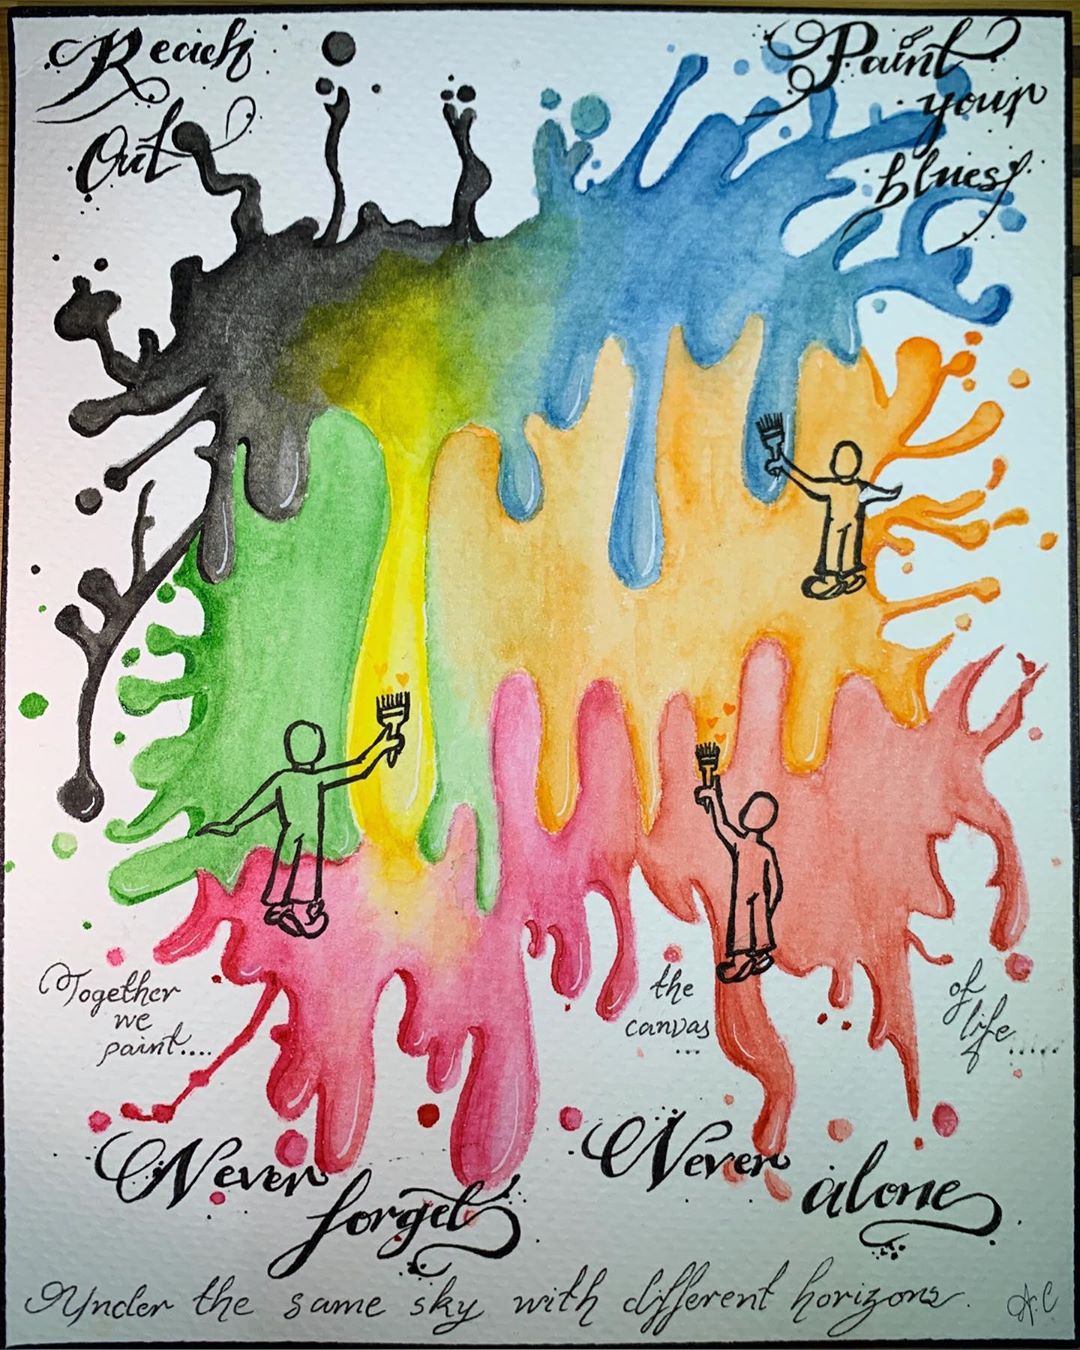 Reach
Out
Paint
your
blues
Together
we
paint....
the
canvas
...
of
life.....
Never
forget
Never
alone
Under the same sky with different horizons.
A.C